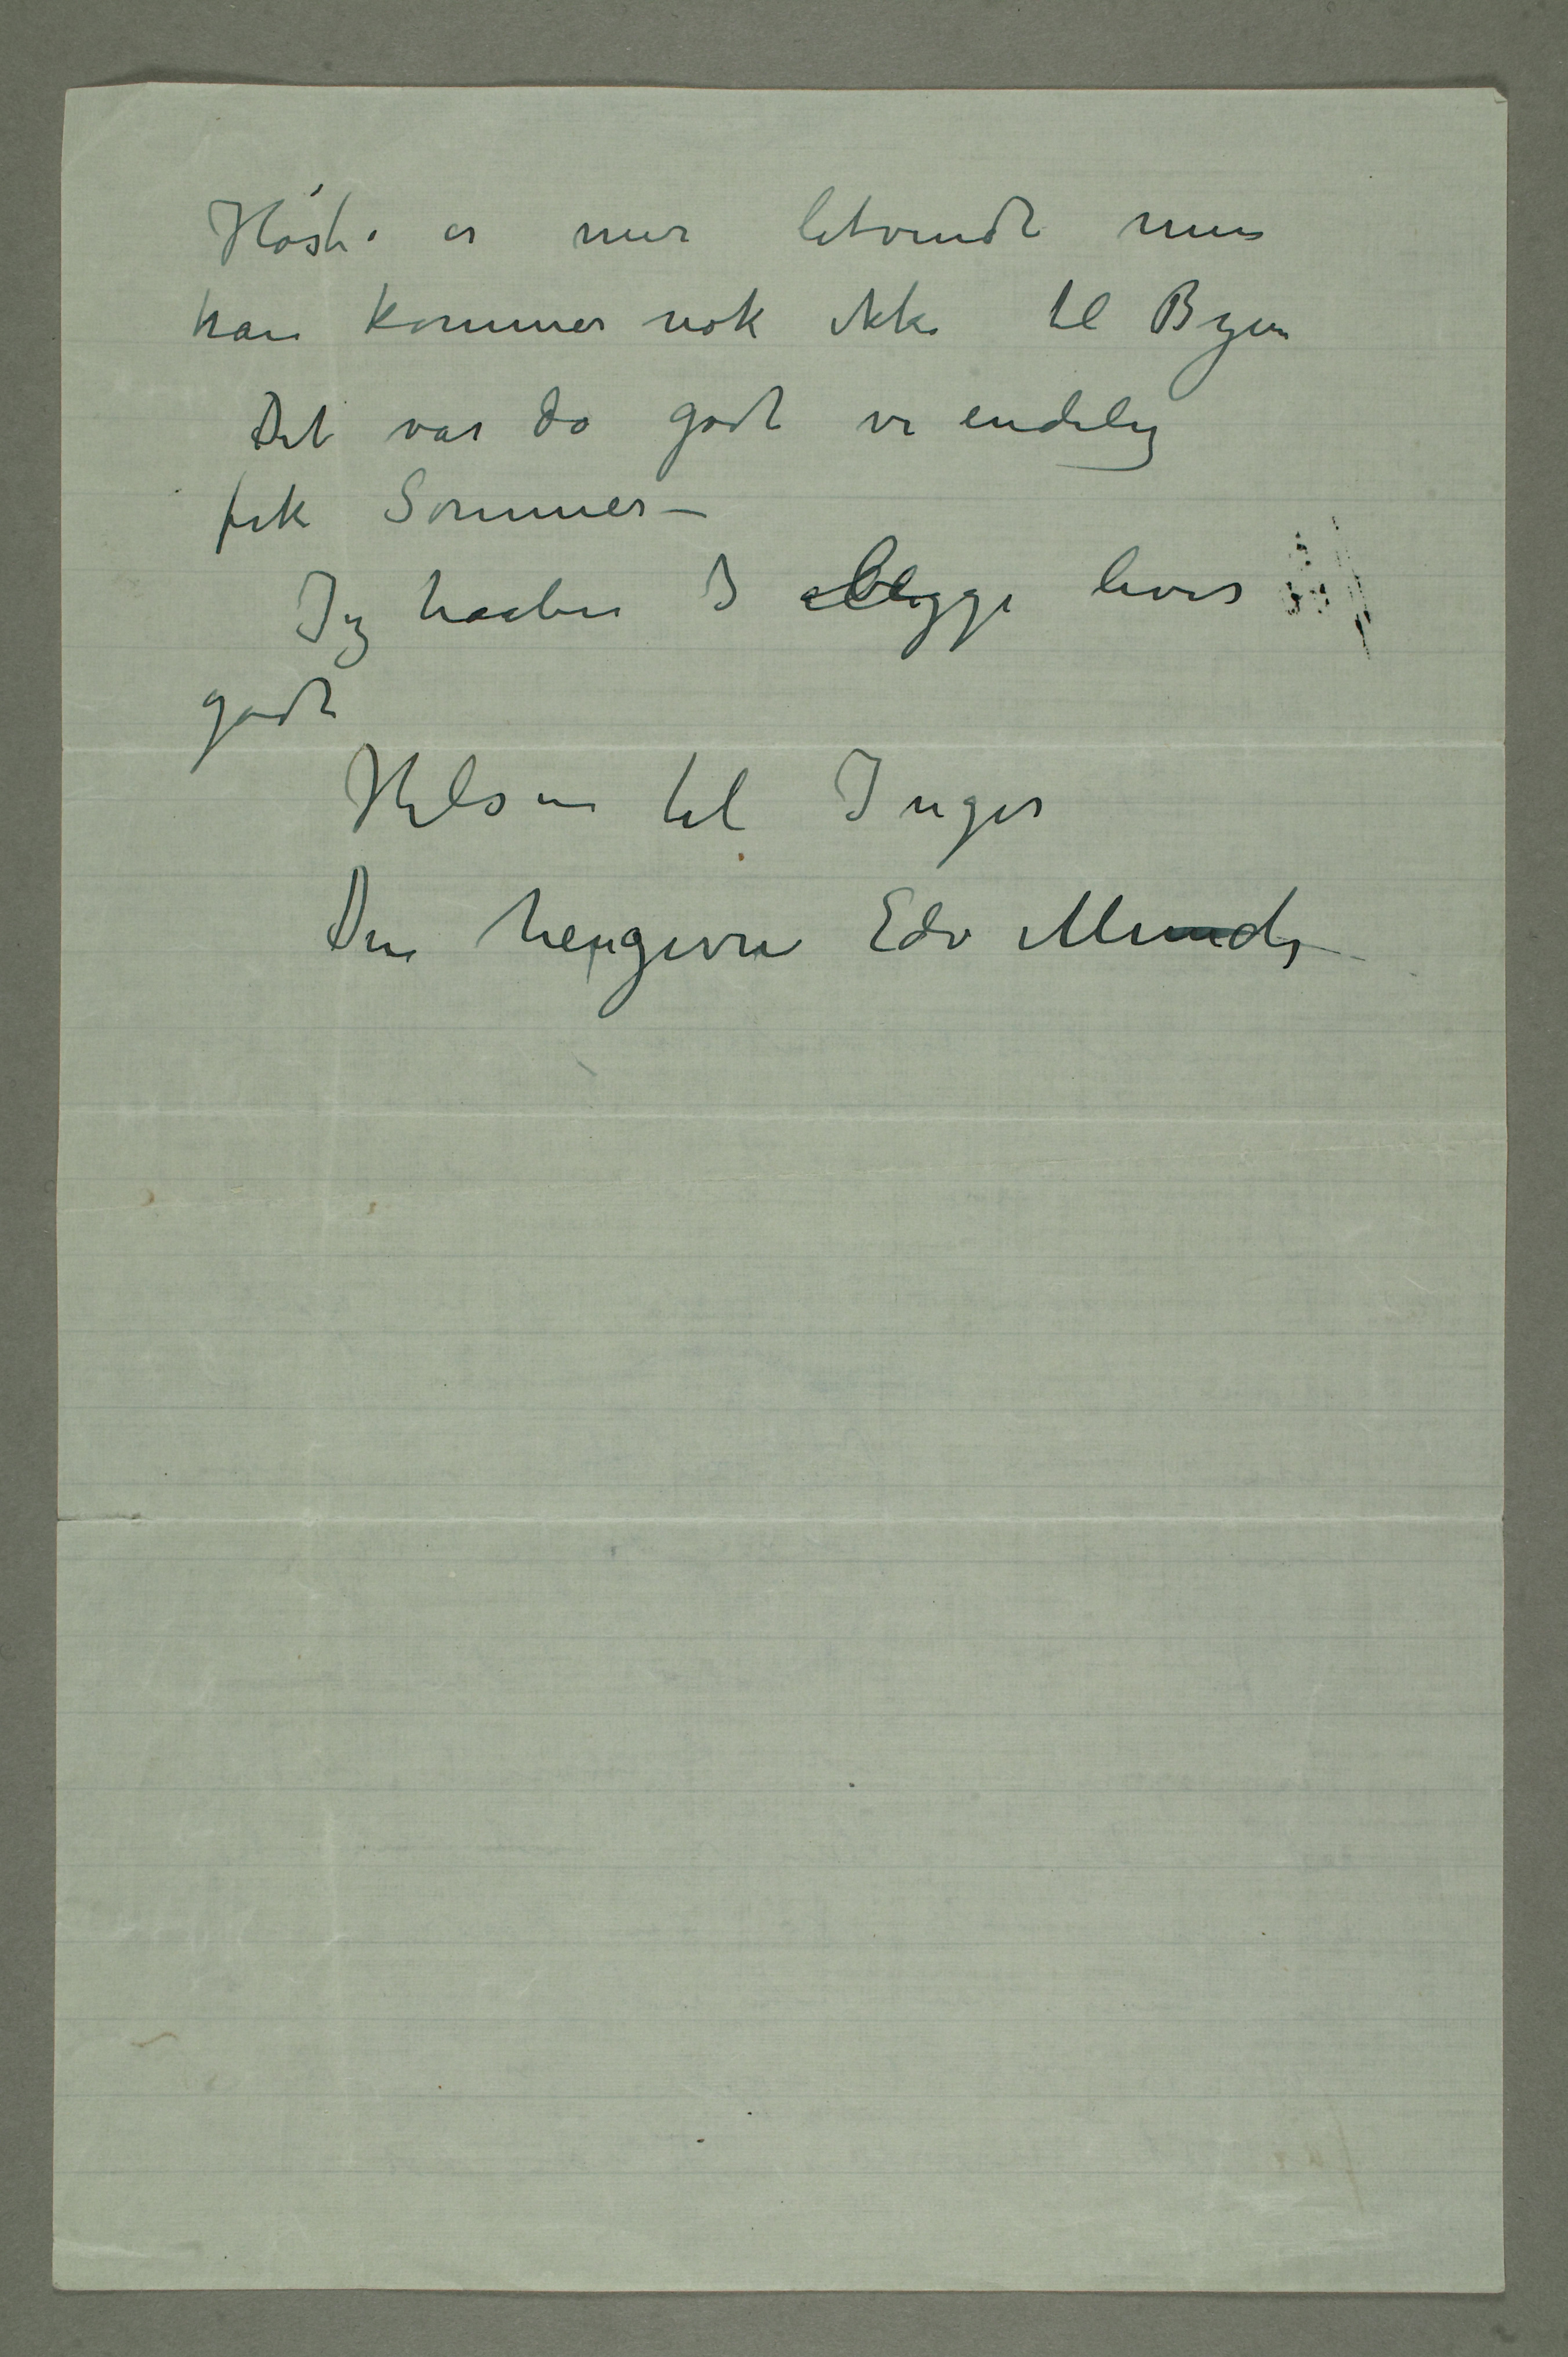 Høst er mer letvindt men
han kommer nok ikke til Byen
Det var da godt vi endelig
fik Sommer –
Jeg haaber I begge lever
godt
Hilsen til Inger
Din hengivne Edv Munch